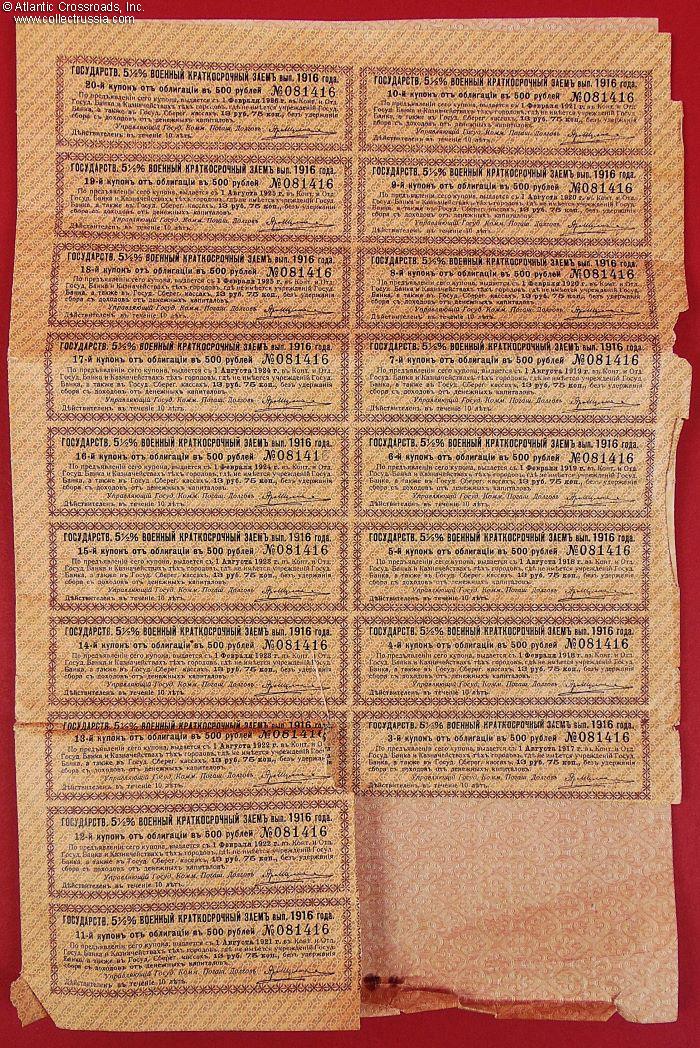 © Atlantic Crossroads, Inc.
www.collectrussia.com
ГОСУДАРСТВ. 5½% ВОЕННЫЙ КРАТКОСРОЧНЫЙ ЗАЕМЪ вып. 1916 года.
20-й купонъ отъ облигаціи въ 500 рублей №081416
По предъявленіи сего купона, выдается съ 1 Февраля 1926 г. въ Конт. и Отд.
Госуд. Банка и Казначействахъ тѣхъ городовъ, гдѣ не имѣется учрежденій Госуд.
Банка, а также въ Госуд. Сберег. кассахъ, 13 руб. 75 коп., безъ удержанія
сбора съ доходовъ отъ денежныхъ капиталовъ.
Управляющій Госуд. Комм. Погаш. Долговъ
Дѣйствителенъ въ теченіе 10 лѣтъ.
ГОСУДАРСТВ. 5½% ВОЕННЫЙ КРАТКОСРОЧНЫЙ ЗАЕМЪ вып. 1916 года.
19-й купонъ отъ облигаціи въ 500 рублей №081416
По предъявленіи сего купона, выдается съ 1 Августа 1925 г. въ Конт. и Отд.
Госуд. Банка и Казначействахъ тѣхъ городовъ, гдѣ не имѣется учрежденій Госуд.
Банка, а также въ Госуд. Сберег. кассахъ, 13 руб. 75 коп., безъ удержанія
сбора съ доходовъ отъ денежныхъ капиталовъ.
Управляющій Госуд. Комм. Погаш. Долговъ
Дѣйствителенъ въ теченіе 10 лѣтъ.
ГОСУДАРСТВ. 5½% ВОЕННЫЙ КРАТКОСРОЧНЫЙ ЗАЕМЪ вып. 1916 года.
18-й купонъ отъ облигаціи въ 500 рублей №081416
По предъявленіи сего купона, выдается съ 1 Февраля 1925 г. въ Конт. и Отд.
Госуд. Банка и Казначействахъ тѣхъ городовъ, гдѣ не имѣется учрежденій Госуд.
Банка, а также въ Госуд. Сберег. кассахъ, 13 руб. 75 коп., безъ удержанія
сбора съ доходовъ отъ денежныхъ капиталовъ.
Управляющій Госуд. Комм. Погаш. Долговъ
Дѣйствителенъ въ теченіе 10 лѣтъ.
ГОСУДАРСТВ. 5½% ВОЕННЫЙ КРАТКОСРОЧНЫЙ ЗАЕМЪ вып. 1916 года.
17-й купонъ отъ облигаціи въ 500 рублей №081416
По предъявленіи сего купона, выдается съ 1 Августа 1924 г. въ Конт. и Отд.
Госуд. Банка и Казначействахъ тѣхъ городовъ, гдѣ не имѣется учрежденій Госуд.
Банка, а также въ Госуд. Сберег. кассахъ, 13 руб. 75 коп., безъ удержанія
сбора съ доходовъ отъ денежныхъ капиталовъ.
Управляющій Госуд. Комм. Погаш. Долговъ
Дѣйствителенъ въ теченіе 10 лѣтъ.
ГОСУДАРСТВ. 5½% ВОЕННЫЙ КРАТКОСРОЧНЫЙ ЗАЕМЪ вып. 1916 года.
16-й купонъ отъ облигаціи въ 500 рублей №081416
По предъявленіи сего купона, выдается съ 1 Февраля 1924 г. въ Конт. и Отд.
Госуд. Банка и Казначействахъ тѣхъ городовъ, гдѣ не имѣется учрежденій Госуд.
Банка, а также въ Госуд. Сберег. кассахъ, 13 руб. 75 коп., безъ удержанія
сбора съ доходовъ отъ денежныхъ капиталовъ.
Управляющій Госуд. Комм. Погаш. Долговъ
Дѣйствителенъ въ теченіе 10 лѣтъ.
ГОСУДАРСТВ. 5½% ВОЕННЫЙ КРАТКОСРОЧНЫЙ ЗАЕМЪ вып. 1916 года.
15-й купонъ отъ облигаціи въ 500 рублей №081416
По предъявленіи сего купона, выдается съ 1 Августа 1923 г. въ Конт. и Отд.
Госуд. Банка и Казначействахъ тѣхъ городовъ, гдѣ не имѣется учрежденій Госуд.
Банка, а также въ Госуд. Сберег. кассахъ, 13 руб. 75 коп., безъ удержанія
сбора съ доходовъ отъ денежныхъ капиталовъ.
Управляющій Госуд. Комм. Погаш. Долговъ
Дѣйствителенъ въ теченіе 10 лѣтъ.
ГОСУДАРСТВ. 5½% ВОЕННЫЙ КРАТКОСРОЧНЫЙ ЗАЕМЪ вып. 1916 года.
14-й купонъ отъ облигаціи въ 500 рублей №081416
По предъявленіи сего купона, выдается съ 1 Февраля 1923 г. въ Конт. и Отд.
Госуд. Банка и Казначействахъ тѣхъ городовъ, гдѣ не имѣется учрежденій Госуд.
Банка, а также въ Госуд. Сберег. кассахъ, 13 руб. 75 коп., безъ удержанія
сбора съ доходовъ отъ денежныхъ капиталовъ.
Управляющій Госуд. Комм. Погаш. Долговъ
Дѣйствителенъ въ теченіе 10 лѣтъ.
ГОСУДАРСТВ. 5½% ВОЕННЫЙ КРАТКОСРОЧНЫЙ ЗАЕМЪ вып. 1916 года.
13-й купонъ отъ облигаціи въ 500 рублей №081416
По предъявленіи сего купона, выдается съ 1 Августа 1922 г. въ Конт. и Отд.
Госуд. Банка и Казначействахъ тѣхъ городовъ, гдѣ не имѣется учрежденій Госуд.
Банка, а также въ Госуд. Сберег. кассахъ, 13 руб. 75 коп., безъ удержанія
сбора съ доходовъ отъ денежныхъ капиталовъ.
Управляющій Госуд. Комм. Погаш. Долговъ
Дѣйствителенъ въ теченіе 10 лѣтъ.
ГОСУДАРСТВ. 5½% ВОЕННЫЙ КРАТКОСРОЧНЫЙ ЗАЕМЪ вып. 1916 года.
12-й купонъ отъ облигаціи въ 500 рублей №081416
По предъявленіи сего купона, выдается съ 1 Февраля 1922 г. въ Конт. и Отд.
Госуд. Банка и Казначействахъ тѣхъ городовъ, гдѣ не имѣется учрежденій Госуд.
Банка, а также въ Госуд. Сберег. кассахъ, 13 руб. 75 коп., безъ удержанія
сбора съ доходовъ отъ денежныхъ капиталовъ.
Управляющій Госуд. Комм. Погаш. Долговъ
Дѣйствителенъ въ теченіе 10 лѣтъ.
ГОСУДАРСТВ. 5½% ВОЕННЫЙ КРАТКОСРОЧНЫЙ ЗАЕМЪ вып. 1916 года.
11-й купонъ отъ облигаціи въ 500 рублей №081416
По предъявленіи сего купона, выдается съ 1 Августа 1921 г. въ Конт. и Отд.
Госуд. Банка и Казначействахъ тѣхъ городовъ, гдѣ не имѣется учрежденій Госуд.
Банка, а также въ Госуд. Сберег. кассахъ, 13 руб. 75 коп., безъ удержанія
сбора съ доходовъ отъ денежныхъ капиталовъ.
Управляющій Госуд. Комм. Погаш. Долговъ
Дѣйствителенъ въ теченіе 10 лѣтъ.
ГОСУДАРСТВ. 5½% ВОЕННЫЙ КРАТКОСРОЧНЫЙ ЗАЕМЪ вып. 1916 года.
10-й купонъ отъ облигаціи въ 500 рублей №081416
По предъявленіи сего купона, выдается съ 1 Февраля 1921 г. въ Конт. и Отд.
Госуд. Банка и Казначействахъ тѣхъ городовъ, гдѣ не имѣется учрежденій Госуд.
Банка, а также въ Госуд. Сберег. кассахъ, 13 руб. 75 коп., безъ удержанія
сбора съ доходовъ отъ денежныхъ капиталовъ.
Управляющій Госуд. Комм. Погаш. Долговъ
Дѣйствителенъ въ теченіе 10 лѣтъ.
ГОСУДАРСТВ. 5½% ВОЕННЫЙ КРАТКОСРОЧНЫЙ ЗАЕМЪ вып. 1916 года.
9-й купонъ отъ облигаціи въ 500 рублей №081416
По предъявленіи сего купона, выдается съ 1 Августа 1920 г. въ Конт. и Отд.
Госуд. Банка и Казначействахъ тѣхъ городовъ, гдѣ не имѣется учрежденій Госуд.
Банка, а также въ Госуд. Сберег. кассахъ, 13 руб. 75 коп., безъ удержанія
сбора съ доходовъ отъ денежныхъ капиталовъ.
Управляющій Госуд. Комм. Погаш. Долговъ
Дѣйствителенъ въ теченіе 10 лѣтъ.
ГОСУДАРСТВ. 5½% ВОЕННЫЙ КРАТКОСРОЧНЫЙ ЗАЕМЪ вып. 1916 года.
8-й купонъ отъ облигаціи въ 500 рублей №081416
По предъявленіи сего купона, выдается съ 1 Февраля 1920 г. въ Конт. и Отд.
Госуд. Банка и Казначействахъ тѣхъ городовъ, гдѣ не имѣется учрежденій Госуд.
Банка, а также въ Госуд. Сберег. кассахъ, 13 руб. 75 коп., безъ удержанія
сбора съ доходовъ отъ денежныхъ капиталовъ.
Управляющій Госуд. Комм. Погаш. Долговъ
Дѣйствителенъ въ теченіе 10 лѣтъ.
ГОСУДАРСТВ. 5½% ВОЕННЫЙ КРАТКОСРОЧНЫЙ ЗАЕМЪ вып. 1916 года.
7-й купонъ отъ облигаціи въ 500 рублей №081416
По предъявленіи сего купона, выдается съ 1 Августа 1919 г. въ Конт. и Отд.
Госуд. Банка и Казначействахъ тѣхъ городовъ, гдѣ не имѣется учрежденій Госуд.
Банка, а также въ Госуд. Сберег. кассахъ, 13 руб. 75 коп., безъ удержанія
сбора съ доходовъ отъ денежныхъ капиталовъ.
Управляющій Госуд. Комм. Погаш. Долговъ
Дѣйствителенъ въ теченіе 10 лѣтъ.
ГОСУДАРСТВ. 5½% ВОЕННЫЙ КРАТКОСРОЧНЫЙ ЗАЕМЪ вып. 1916 года.
6-й купонъ отъ облигаціи въ 500 рублей №081416
По предъявленіи сего купона, выдается съ 1 Февраля 1919 г. въ Конт. и Отд.
Госуд. Банка и Казначействахъ тѣхъ городовъ, гдѣ не имѣется учрежденій Госуд.
Банка, а также въ Госуд. Сберег. кассахъ, 13 руб. 75 коп., безъ удержанія
сбора съ доходовъ отъ денежныхъ капиталовъ.
Управляющій Госуд. Комм. Погаш. Долговъ
Дѣйствителенъ въ теченіе 10 лѣтъ.
ГОСУДАРСТВ. 5½% ВОЕННЫЙ КРАТКОСРОЧНЫЙ ЗАЕМЪ вып. 1916 года.
5-й купонъ отъ облигаціи въ 500 рублей №081416
По предъявленіи сего купона, выдается съ 1 Августа 1918 г. въ Конт. и Отд.
Госуд. Банка и Казначействахъ тѣхъ городовъ, гдѣ не имѣется учрежденій Госуд.
Банка, а также въ Госуд. Сберег. кассахъ, 13 руб. 75 коп., безъ удержанія
сбора съ доходовъ отъ денежныхъ капиталовъ.
Управляющій Госуд. Комм. Погаш. Долговъ
Дѣйствителенъ въ теченіе 10 лѣтъ.
ГОСУДАРСТВ. 5½% ВОЕННЫЙ КРАТКОСРОЧНЫЙ ЗАЕМЪ вып. 1916 года.
4-й купонъ отъ облигаціи въ 500 рублей №081416
По предъявленіи сего купона, выдается съ 1 Февраля 1918 г. въ Конт. и Отд.
Госуд. Банка и Казначействахъ тѣхъ городовъ, гдѣ не имѣется учрежденій Госуд.
Банка, а также въ Госуд. Сберег. кассахъ, 13 руб. 75 коп., безъ удержанія
сбора съ доходовъ отъ денежныхъ капиталовъ.
Управляющій Госуд. Комм. Погаш. Долговъ
Дѣйствителенъ въ теченіе 10 лѣтъ.
ГОСУДАРСТВ. 5½% ВОЕННЫЙ КРАТКОСРОЧНЫЙ ЗАЕМЪ вып. 1916 года.
3-й купонъ отъ облигаціи въ 500 рублей №081416
По предъявленіи сего купона, выдается съ 1 Августа 1917 г. въ Конт. и Отд.
Госуд. Банка и Казначействахъ тѣхъ городовъ, гдѣ не имѣется учрежденій Госуд.
Банка, а также въ Госуд. Сберег. кассахъ, 13 руб. 75 коп., безъ удержанія
сбора съ доходовъ отъ денежныхъ капиталовъ.
Управляющій Госуд. Комм. Погаш. Долговъ
Дѣйствителенъ въ теченіе 10 лѣтъ.